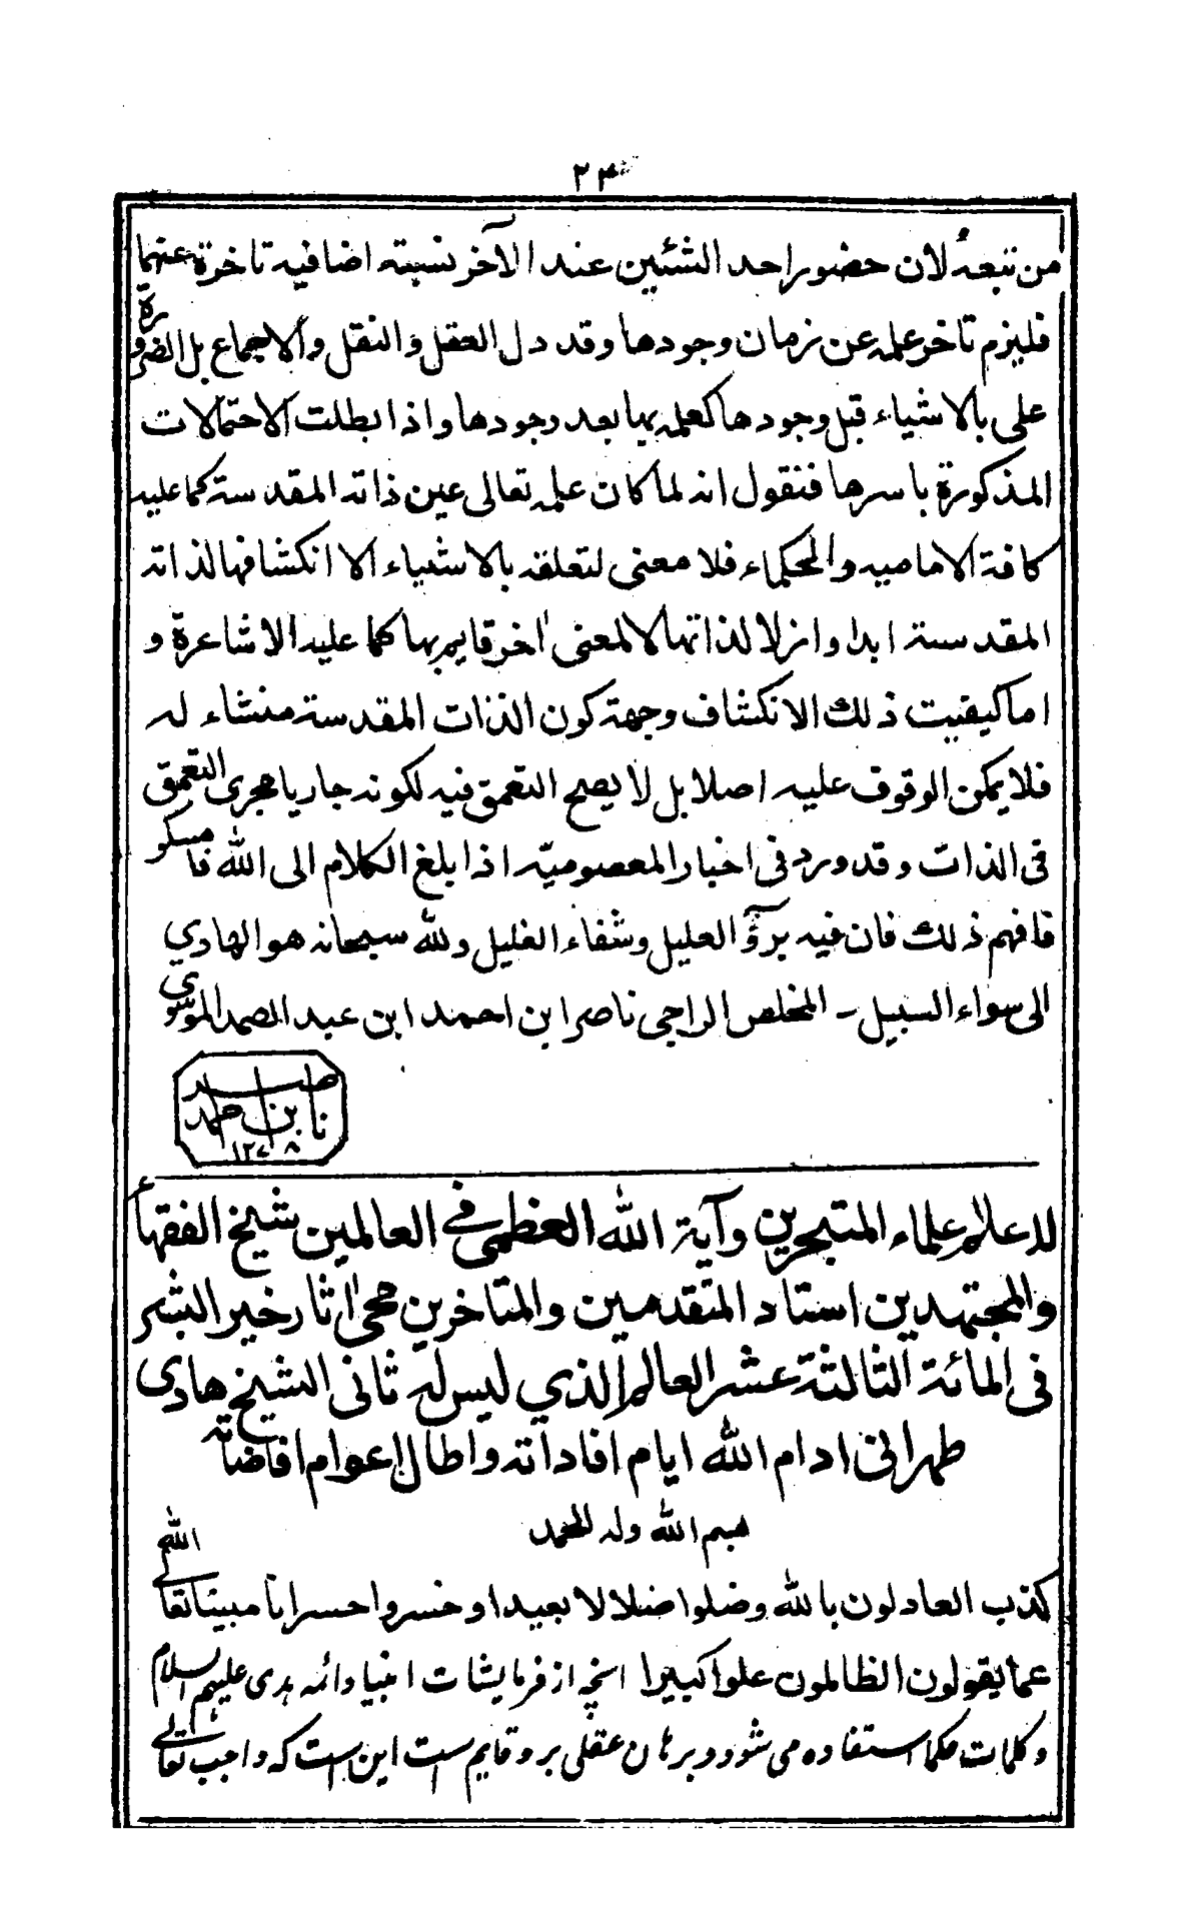 ۲۳
من تبعه لان حضور احد الشئين عند الآخر نسبته اضافيه تاخرة عنهما
فليزم تاخر علمه عن زمان وجودها وقد دل العقل والنقل والاجماع بل الضرورة
على بالاشياء قبل وجودها كعلمه بها بعد وجودها واذا بطلت الاحتمالات
المذكورة باسرها فنقول انه لما كان علمه تعالى عين ذاته المقدسة كما عليه
كافة الاماميه والحكماء فلا معنى لتعلقه بالاشياء الا انكشافها لذاته
المقدسة ابدا وازلا لذاتها لا لمعنى اخر قايم بها كما عليه الاشاعرة و
اما كيفيت ذلك الانكشاف وجهة كون الذات المقدسة منشاء له
فلا يمكن الوقوف عليه اصلا بل لا يصح التعمق فيه لكونه جاريا مجرى التعمق
فى الذات وقد ورد فى اخبار المعصوميه اذا بلغ الكلام الى الله فامسكو
فافهم ذلك فان فيه برؤ العليل وشفاء الغليل ولله سبحانه هو الهادي
الى سواء السبيل ـ المخلص الراجى ناصر ابن احمد ابن عبد الصمد الموسوي
ناصر بن احمد
لاعلام علماء المتبحرين وآية الله العظمى في العالمين شيخ الفقهاء
والمجتهدين استاد المتقدمين والمتاخرين محى اثار خير البشر
فى المائة الثالثة عشر العالم الذي ليس له ثانى الشيخ هادى
طهرانى ادام الله ايام افاداته واطال اعوام افاضاته
بسم الله وله الحمد
كذب العادلون بالله وضلوا ضلالا بعيدا وخسروا خسرانا مبينا تعالى الله
عما يقولون الظالمون علوا كبيرا انچه از فرمايشات انبيا وائمه هدى عليهم السلام
وكلمات حكما استفاده مى شود وبرهان عقلى بر وقايم است اين است كه واجب تعالى